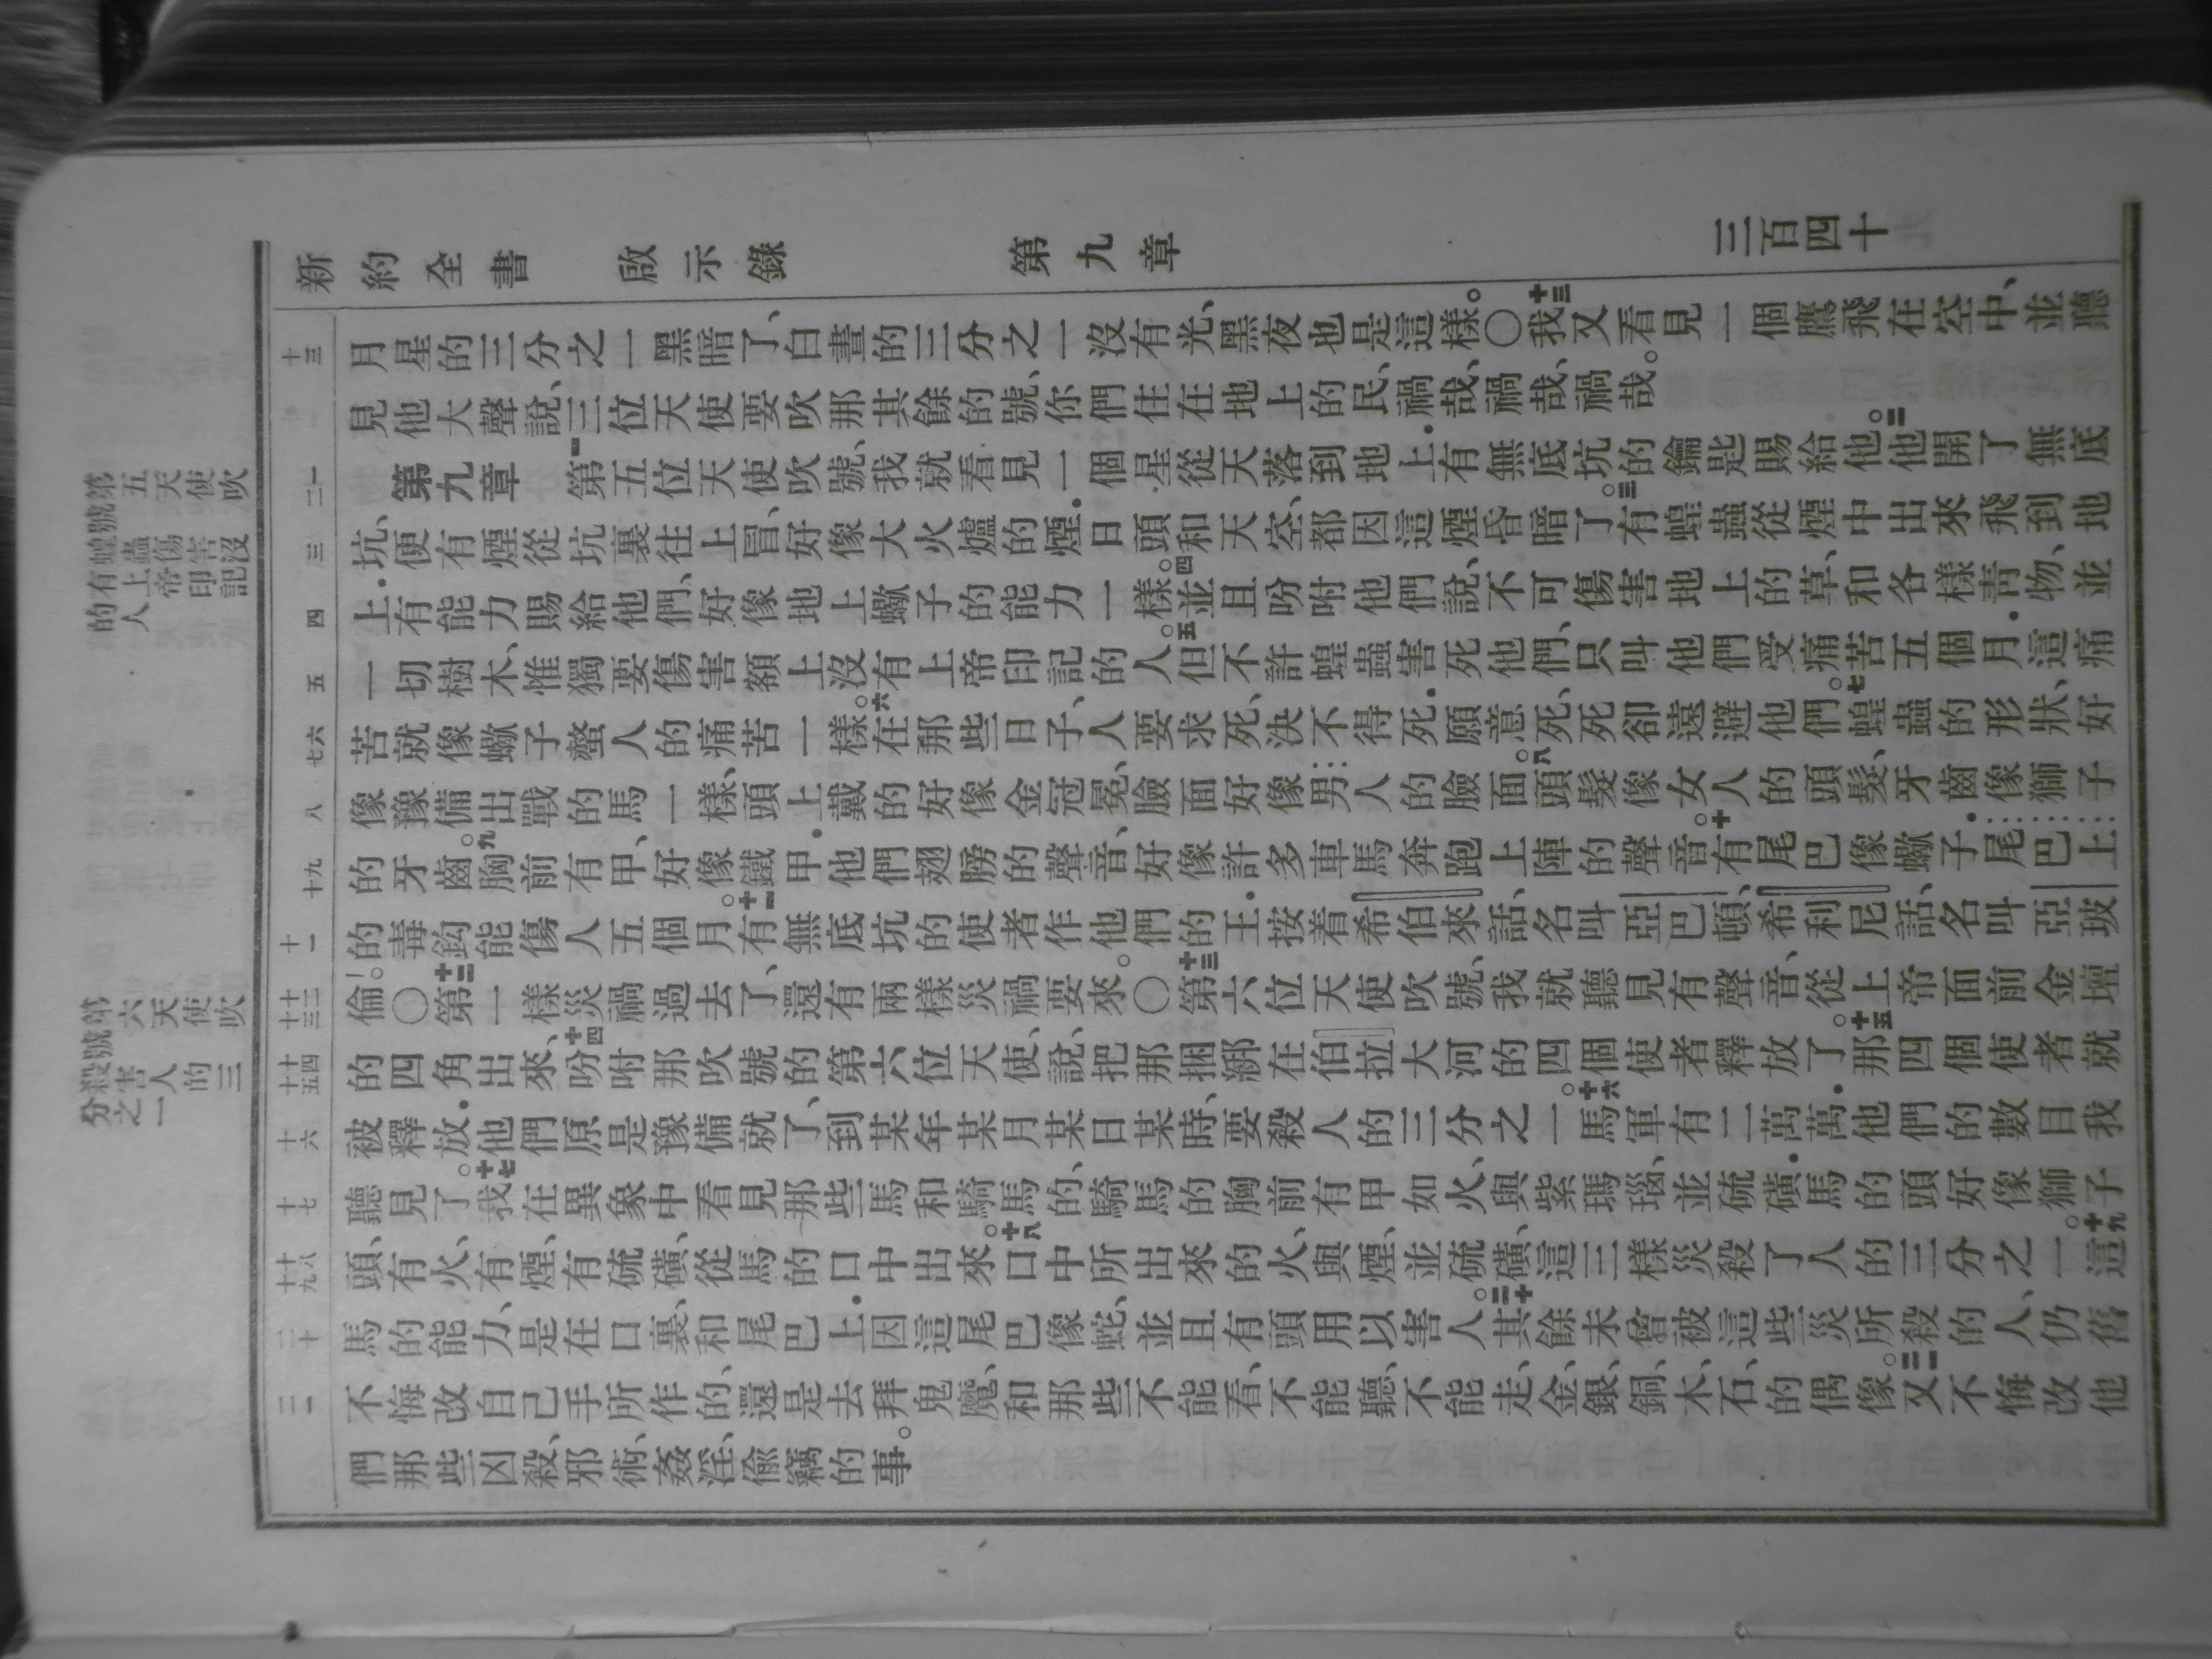 新約全書 啟示錄 第九章 三百四十
十三
月星的三分之一黑暗了、白晝的三分之一沒有光、黑夜也是這樣。〇十三我又看見一個鷹飛在空中、並聽
見他大聲說、三位天使要吹那其餘的號、你們住在地上的民、禍哉、禍哉、禍哉。
第號蝗有的
五天使吹
蟲傷害沒
上帝印記
人
一二
第九章 一第五位天使吹號、我就看見一個星從天落到地上．有無底坑的鑰匙賜給他。二他開了無底
三
坑、便有煙從坑裏往上冒、好像大火爐的煙．日頭和天空、都因這煙昏暗了。三有蝗蟲從煙中出來飛到地
四
上．有能力賜給他們、好像地上蠍子的能力一樣。四並且吩咐他們說、不可傷害地上的草、和各樣青物、並
五
一切樹木、惟獨要傷害額上沒有上帝印記的人。五但不許蝗蟲害死他們、只叫他們受痛苦五個月．這痛
六七
苦就像蠍子螫人的痛苦一樣。六在那些日子、人要求死、決不得死．願意死、死卻遠避他們。七蝗蟲的形狀、好
八
像豫備出戰的馬一樣、頭上戴的好像金冠冕、臉面好像男人的臉面。八頭髮像女人的頭髮、牙齒像獅子
九十
的牙齒。九胸前有甲、好像鐵甲．他們翅膀的聲音、好像許多車馬奔跑上陣的聲音。十有尾巴像蠍子．尾巴上
十一
的毒鈎能傷人五個月。十一有無底坑的使者作他們的王．按着希伯來話、名叫亞巴頓、希利尼話、名叫亞玻
第六天使吹
號殺害人的三
分之一
十二十三
倫。〇十二第一樣災禍過去了、還有兩樣災禍要來。〇十三第六位天使吹號、我就聽見有聲音、從上帝面前金壇
十四十五
的四角出來、十四吩咐那吹號的第六位天使、說、把那捆綁在伯拉大河的四個使者釋放了。十五那四個使者就
十六
被釋放．他們原是豫備就了、到某年某月某日某時、要殺人的三分之一。十六馬軍有二萬萬．他們的數目我
十七
聽見了。十七我在異象中看見那些馬和騎馬的、騎馬的胸前有甲如火、與紫瑪瑙、並硫磺．馬的頭好像獅子
十八十九
頭、有火、有煙、有硫磺、從馬的口中出來。十八口中所出來的火、與煙、並硫磺、這三樣災殺了人的三分之一。十九這
二十
馬的能力、是在口裏、和尾巴上．因這尾巴像蛇、並且有頭用以害人。二十其餘未曾被這些災所殺的人、仍舊
二一
不悔改自己手所作的、還是去拜鬼魔、和那些不能看、不能聽、不能走、金、銀、銅、木、石、的偶像。二一又不悔改他
們那些凶殺、邪術、姦淫、偷竊的事。